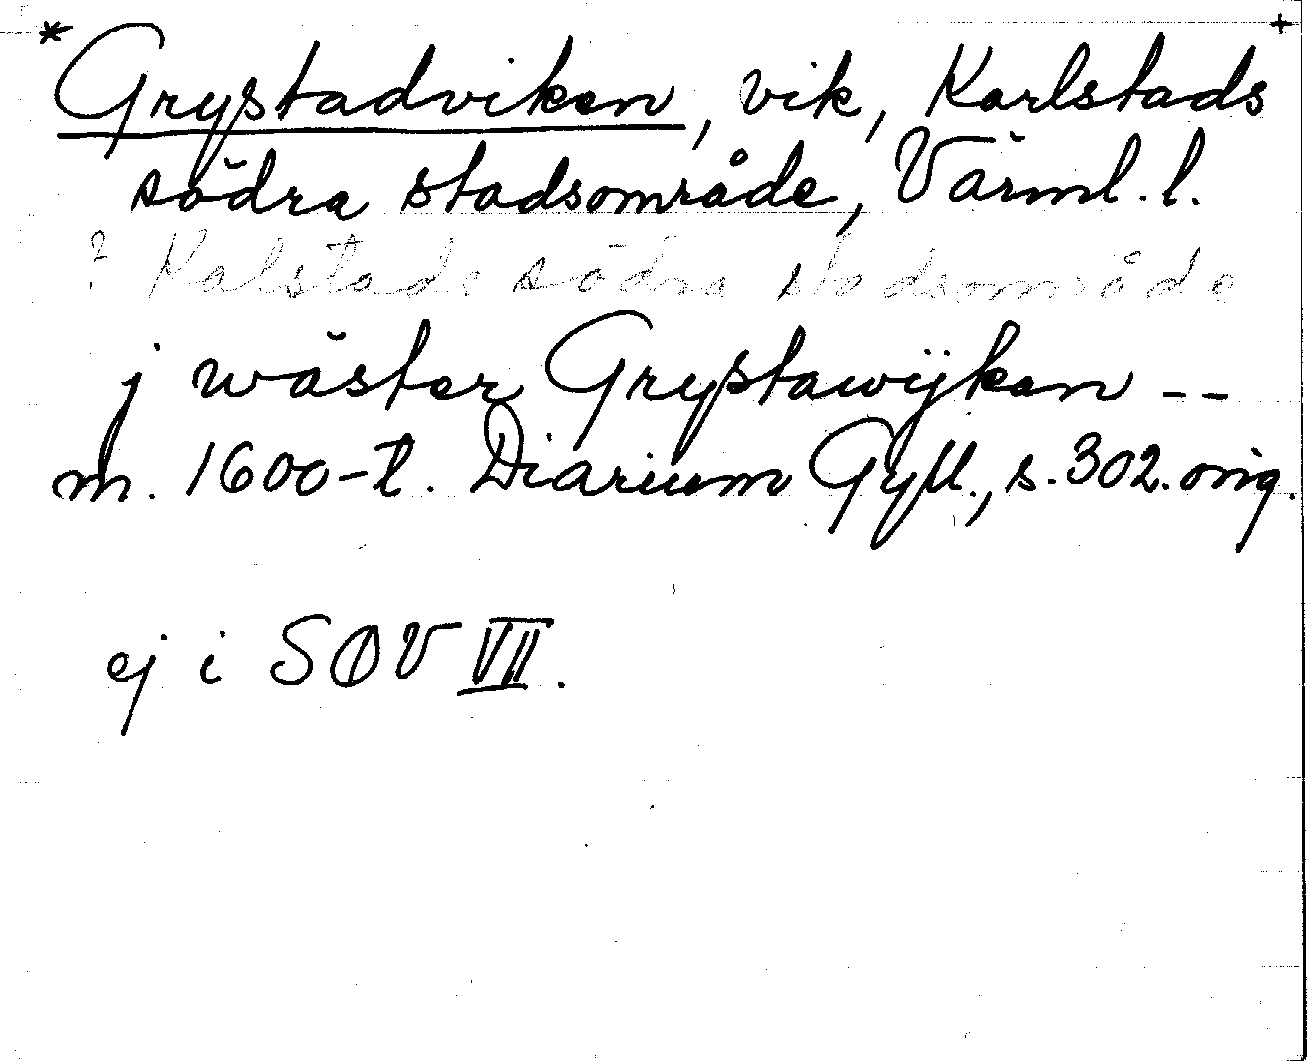 * +
Grystadviken, vik, Karlstads
södra stadsområde, Värml. l.
? Kalstads södra stadsområde
j wäster Grystawijken --
m. 1600-t. Diarium Gyll., s. 302. orig.
ej i SOV VII.